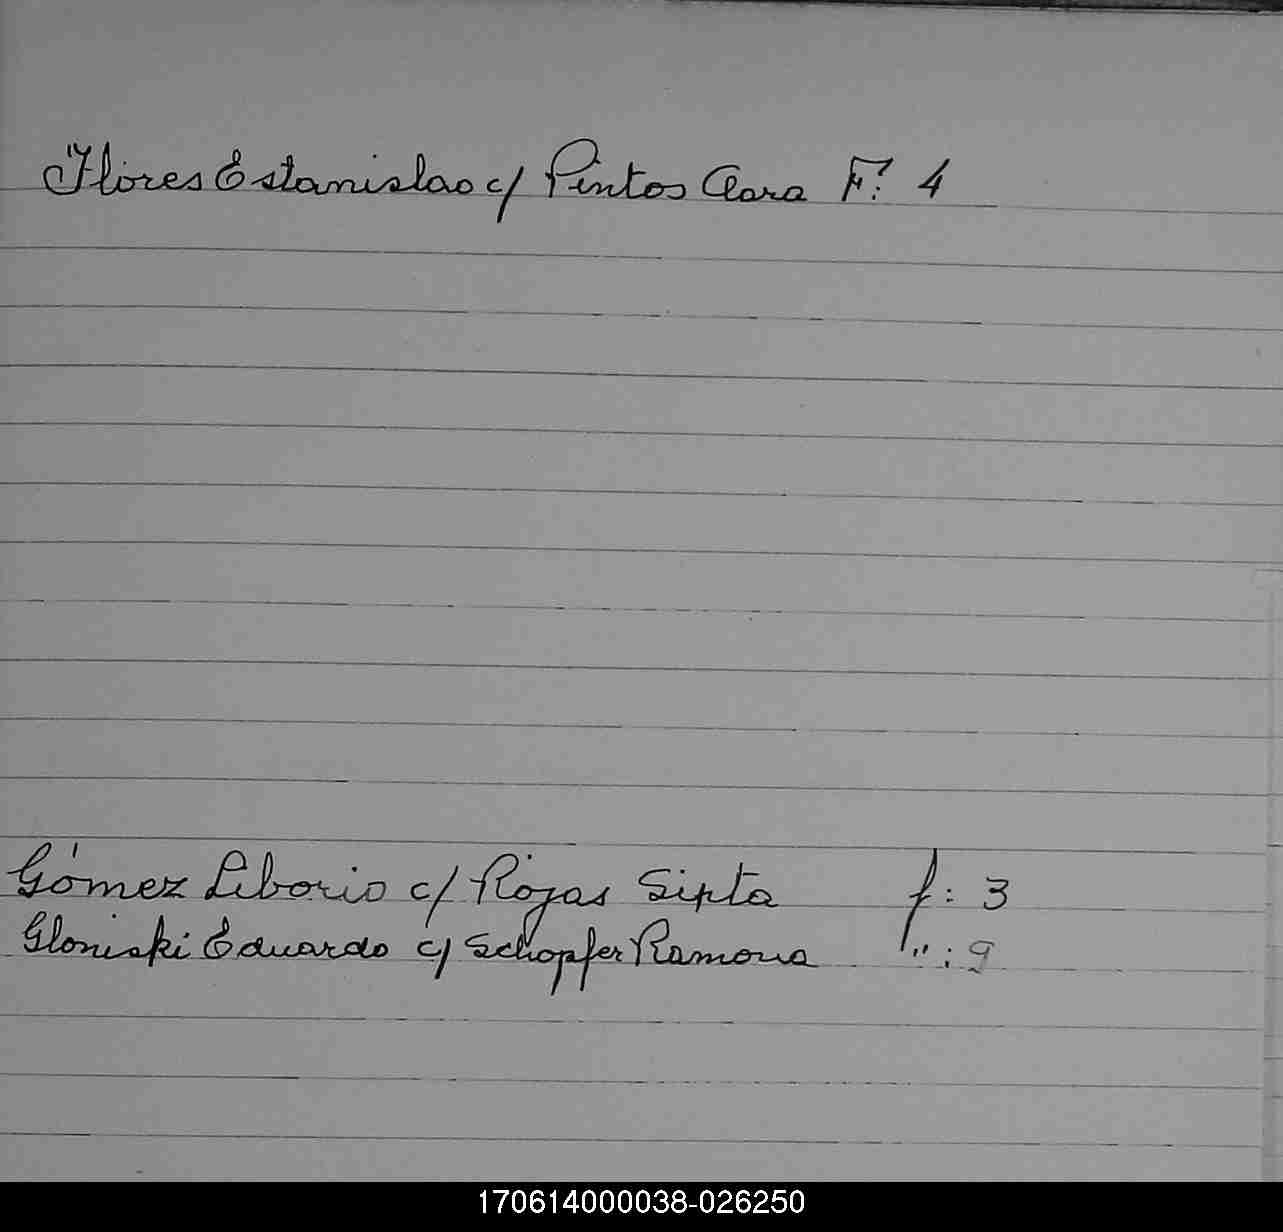 Flores Estanislao c/ Pintos Clara F: 4
Gómez Liborio c/ Rojas Sixta f: 3
Gloniski Eduardo c/ Schopfer Ramona " : 9
170614000038-026250